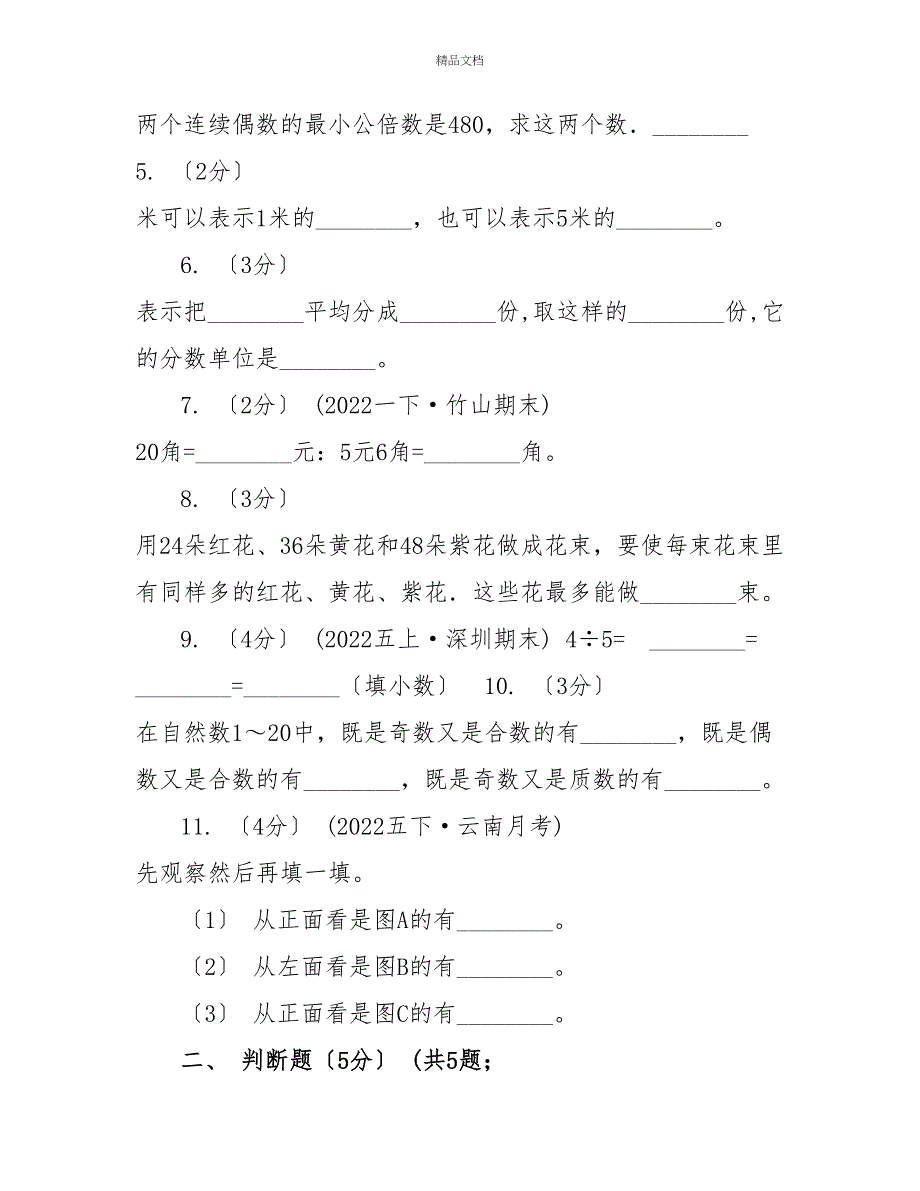 精品文档
两个连续偶数的最小公倍数是480，求这两个数．________
5. 〔2分〕
米可以表示1米的________，也可以表示5米的________。
6. 〔3分〕
表示把________平均分成________份,取这样的________份,它
的分数单位是________。
7. 〔2分〕 (2022一下·竹山期末)
20角=________元：5元6角=________角。
8. 〔3分〕
用24朵红花、36朵黄花和48朵紫花做成花束，要使每束花束里
有同样多的红花、黄花、紫花．这些花最多能做________束。
9. 〔4分〕 (2022五上·深圳期末) 4÷5= ________=
________=________〔填小数〕 10. 〔3分〕
在自然数1～20中，既是奇数又是合数的有________，既是偶
数又是合数的有________，既是奇数又是质数的有________。
11. 〔4分〕 (2022五下·云南月考)
先观察然后再填一填。
〔1〕 从正面看是图A的有________。
〔2〕 从左面看是图B的有________。
〔3〕 从正面看是图C的有________。
二、 判断题〔5分〕 (共5题；